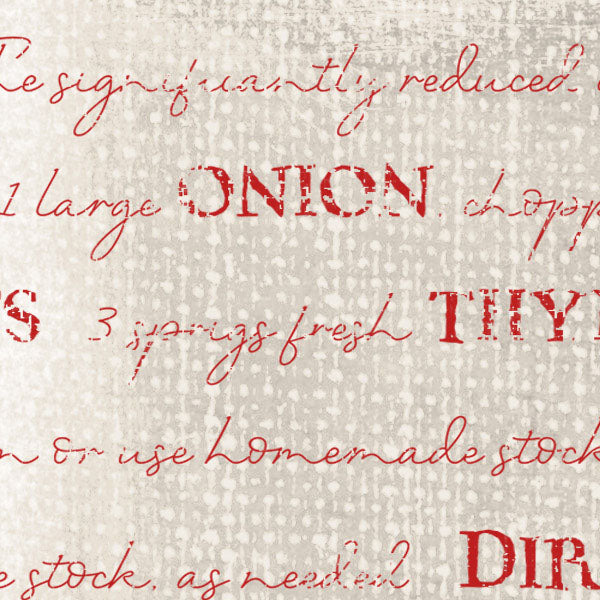 Re significantly reduced
1 large ONION, chopp
S 3 sprigs fresh THY
n or use homemade stock
e stock, as needed DIR